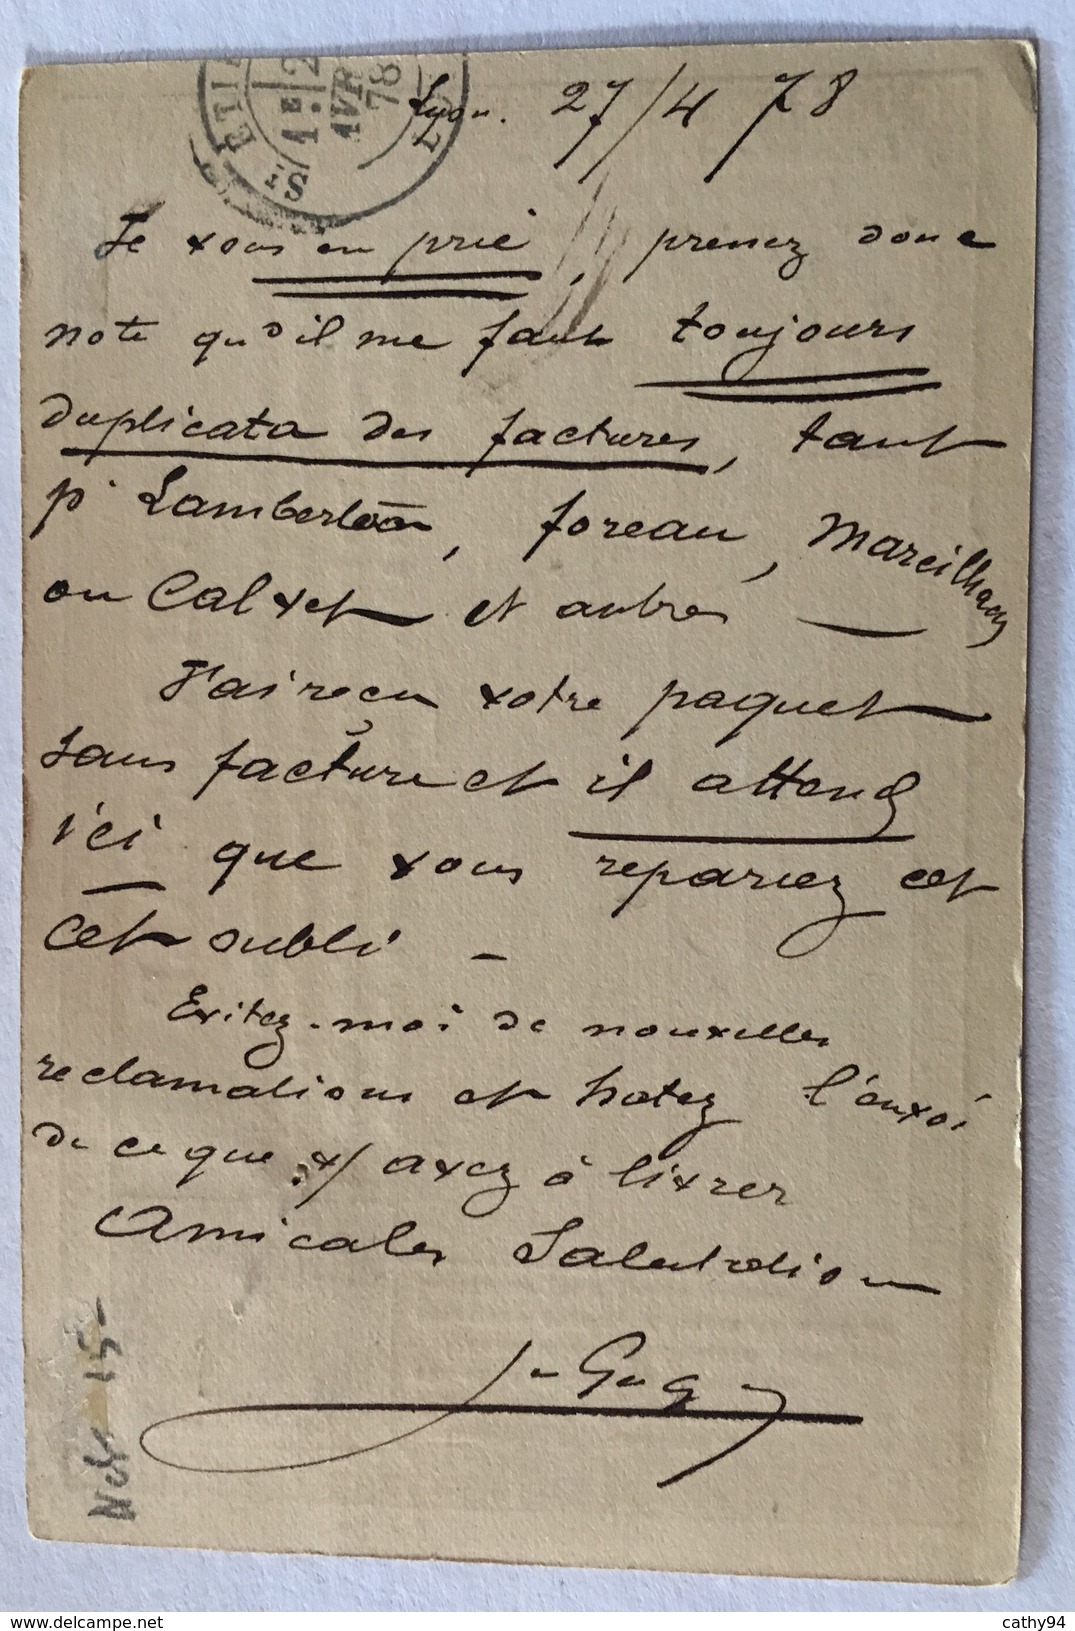 Lyon. 27/4 78
Je vous en prie, prenez donc
note qu'il me faut toujours
duplicata des factures, tant
pr Lamberton, foreau, Mareilhac
ou Calvet et autres —
J'ai reçu votre paquet
sans facture et il attend
ici que vous repariez cet
cet oubli –
Evitez-moi de nouvelles
reclamations et hatez l'envoi
de ce que v/ avez à livrer
Amicales Salutations
ST ETIE
1E/2
AVR
78
15-
cathy94